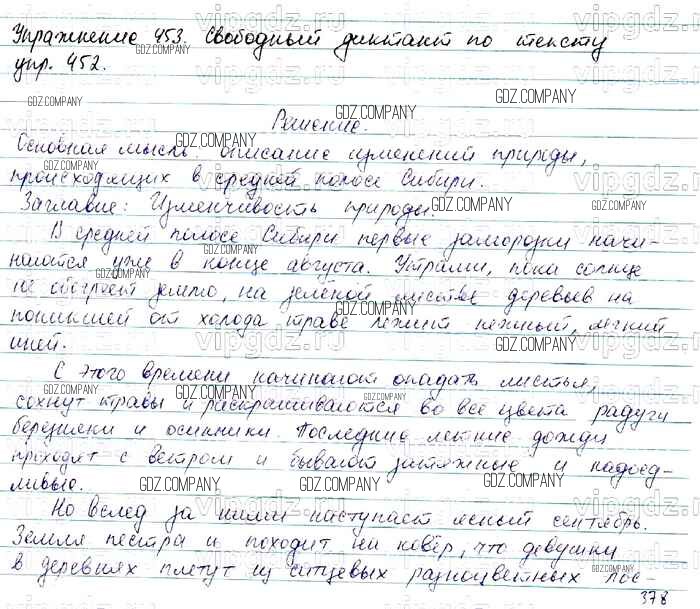 Упражнение 453. Свободный диктант по тексту
упр. 452.
Решение.
Основная мысль: описание изменений природы,
происходящих в средней полосе Сибири.
Заглавие: Изменчивость природы.
В средней полосе Сибири первые заморозки начи-
наются уже в конце августа. Утрами, пока солнце
не обогреет землю, на зелёной листве деревьев на
поникшей от холода траве лежит нежный, легкий
иней.
С этого времени начинают опадать листья,
сохнут травы и раскрашиваются во все цвета радуги
березняки и осинники. Последние летние дожди
проходят с ветром и бывают затяжные и надоед-
ливые.
Но вслед за ними наступает ясный сентябрь.
Земля пестра и походит на ковёр, что девушки
в деревнях плетут из ситцевых разноцветных лос-
378
GDZ.COMPANY
vipgdz.ru